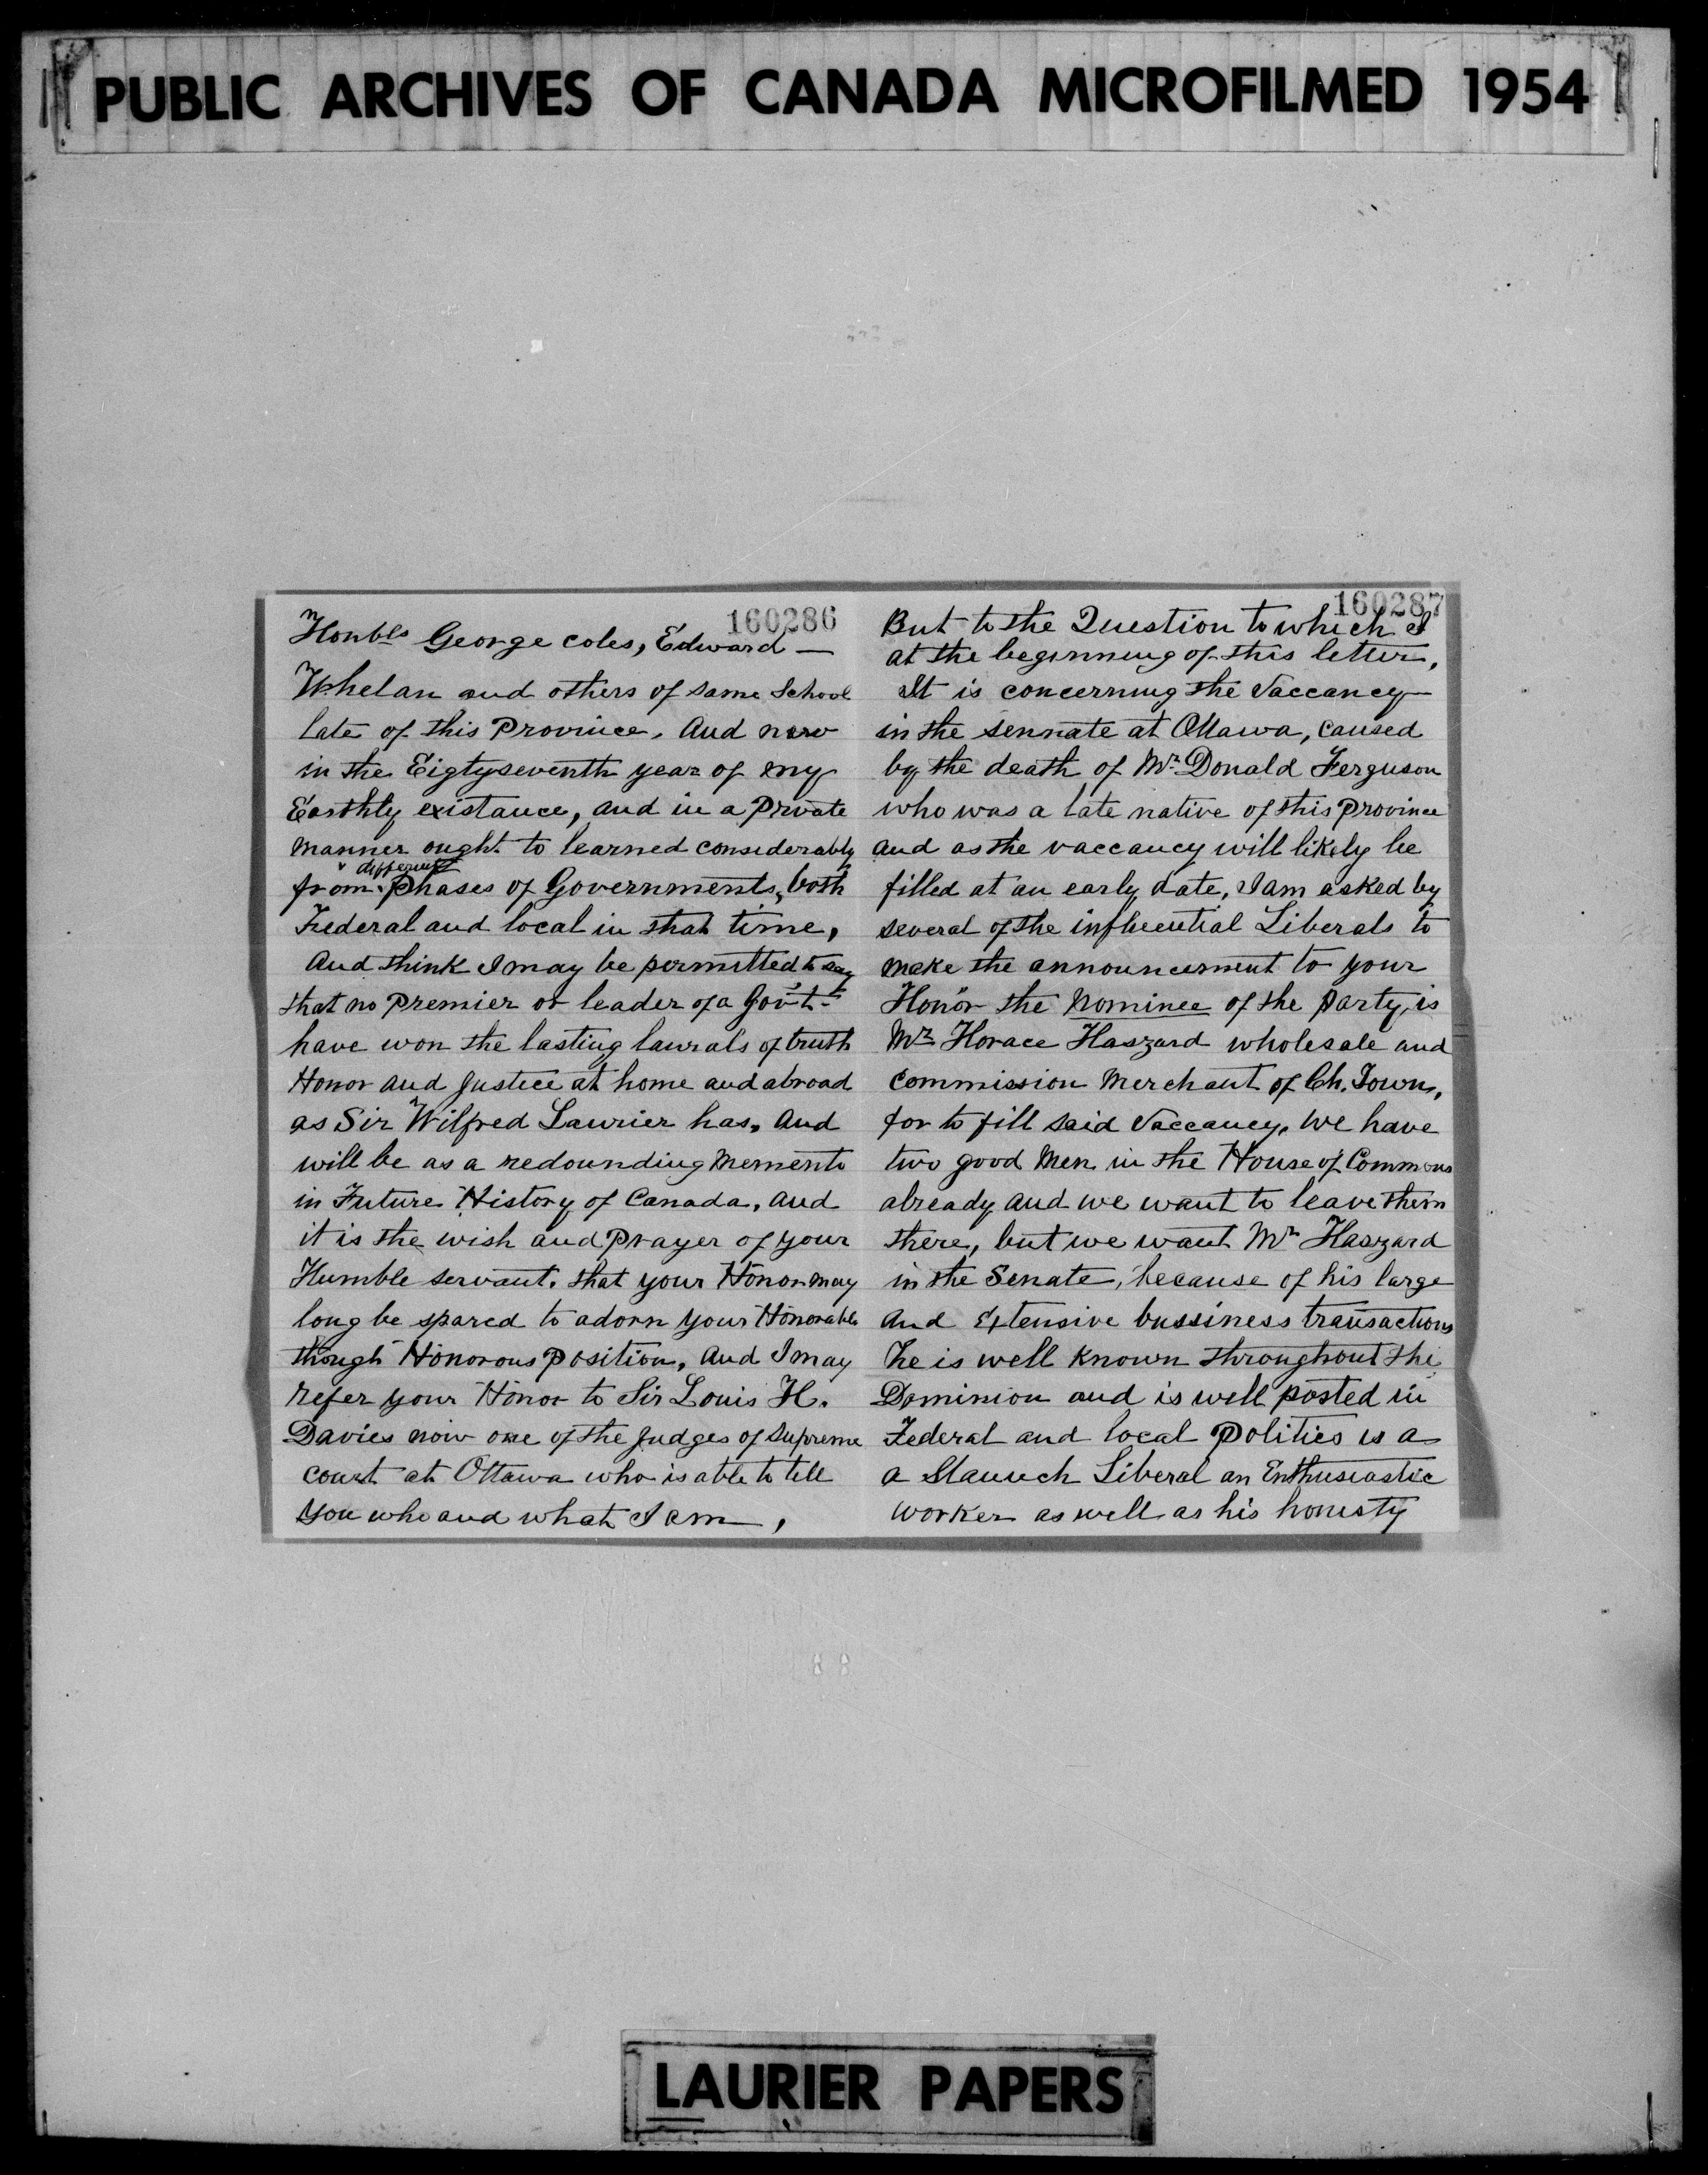 PUBLIC ARCHIVES OF CANADA MICROFILMED 1954
160286
Honbls George coles, Edward —
Whelan and others of same School
late of this Province. And now
in the Eigtyseventh year of my
Earthly existance, and in a Private
manner ought to learned considerably
different
from Phases of Governments, both
Federal and local in that time,
And think I may be permitted to say
that no Premier or leader of a Gov't-
have won the lasting laurals of truth
Honor and Justice at home and abroad
as Sir Wilfred Laurier has, And
will be as a redounding Memento
in Future History of Canada, and
it is the wish and Prayer of your
Humble servant. that your Honor may
long be spared to adorn your Honorable
though Honorous Position, And I may
refer your Honor to Sir Louis H.
Davies now one of the Judges of Supreme
court at Ottawa who is able to tell
you who and what I am,
160287
But to the Question to which I
at the beginning of this letter,
It is concerning the Vaccancy
in the sennate at Ottawa, caused
by the death of Mr. Donald Ferguson
who was a late native of this Province
and as the vaccancy will likely be
filled at an early date, I am asked by
several of the influential Liberals to
make the announcement to your
Honor the Nominee of the party, is
Mr Horace Haszard wholesale and
Commission Merchant of Ch. Town,
for to fill said Vaccancy. We have
two good Men in the House of Commons
already and we want to leave them
there, but we want Mr Haszard
in the Senate, because of his large
and Extensive bussiness transactions
he is well known throughout the
Dominion and is well posted in
Federal and local Polities is a
a Staunch Liberal an Enthusiastic
worker as well as his honesty
LAURIER PAPERS